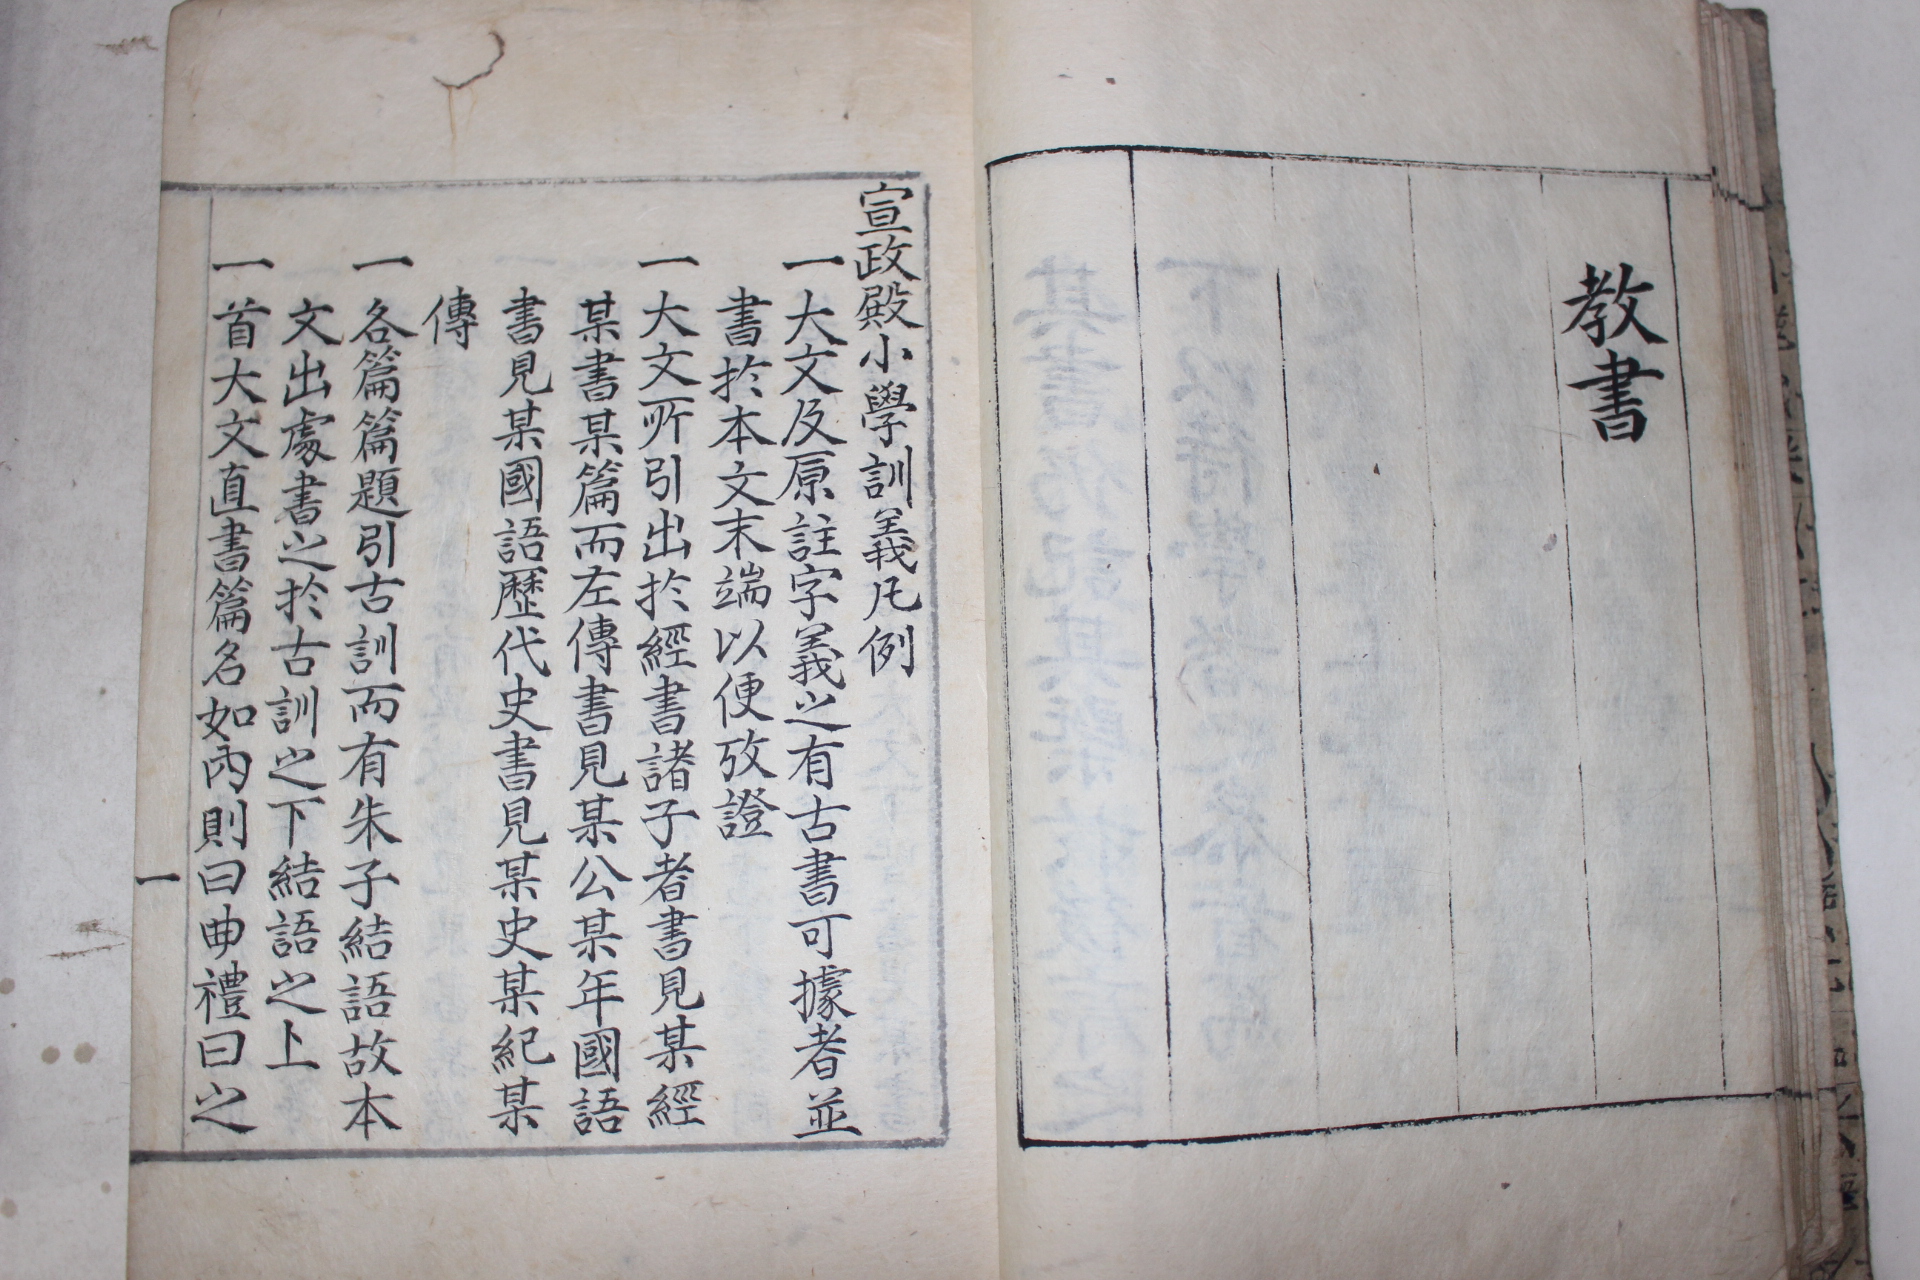 教書
宣政殿小學訓義凡例
一大文及原註字義之有古書可據者並
書於本文末端以便攷證
一大文所引出於經書諸子者書見某經
某書某篇而左傳書見某公某年國語
書見某國語歷代史書見某史某紀某
傳
一各篇篇題引古訓而有朱子結語故本
文出處書之於古訓之下結語之上
一首大文直書篇名如內則曰曲禮曰之
一